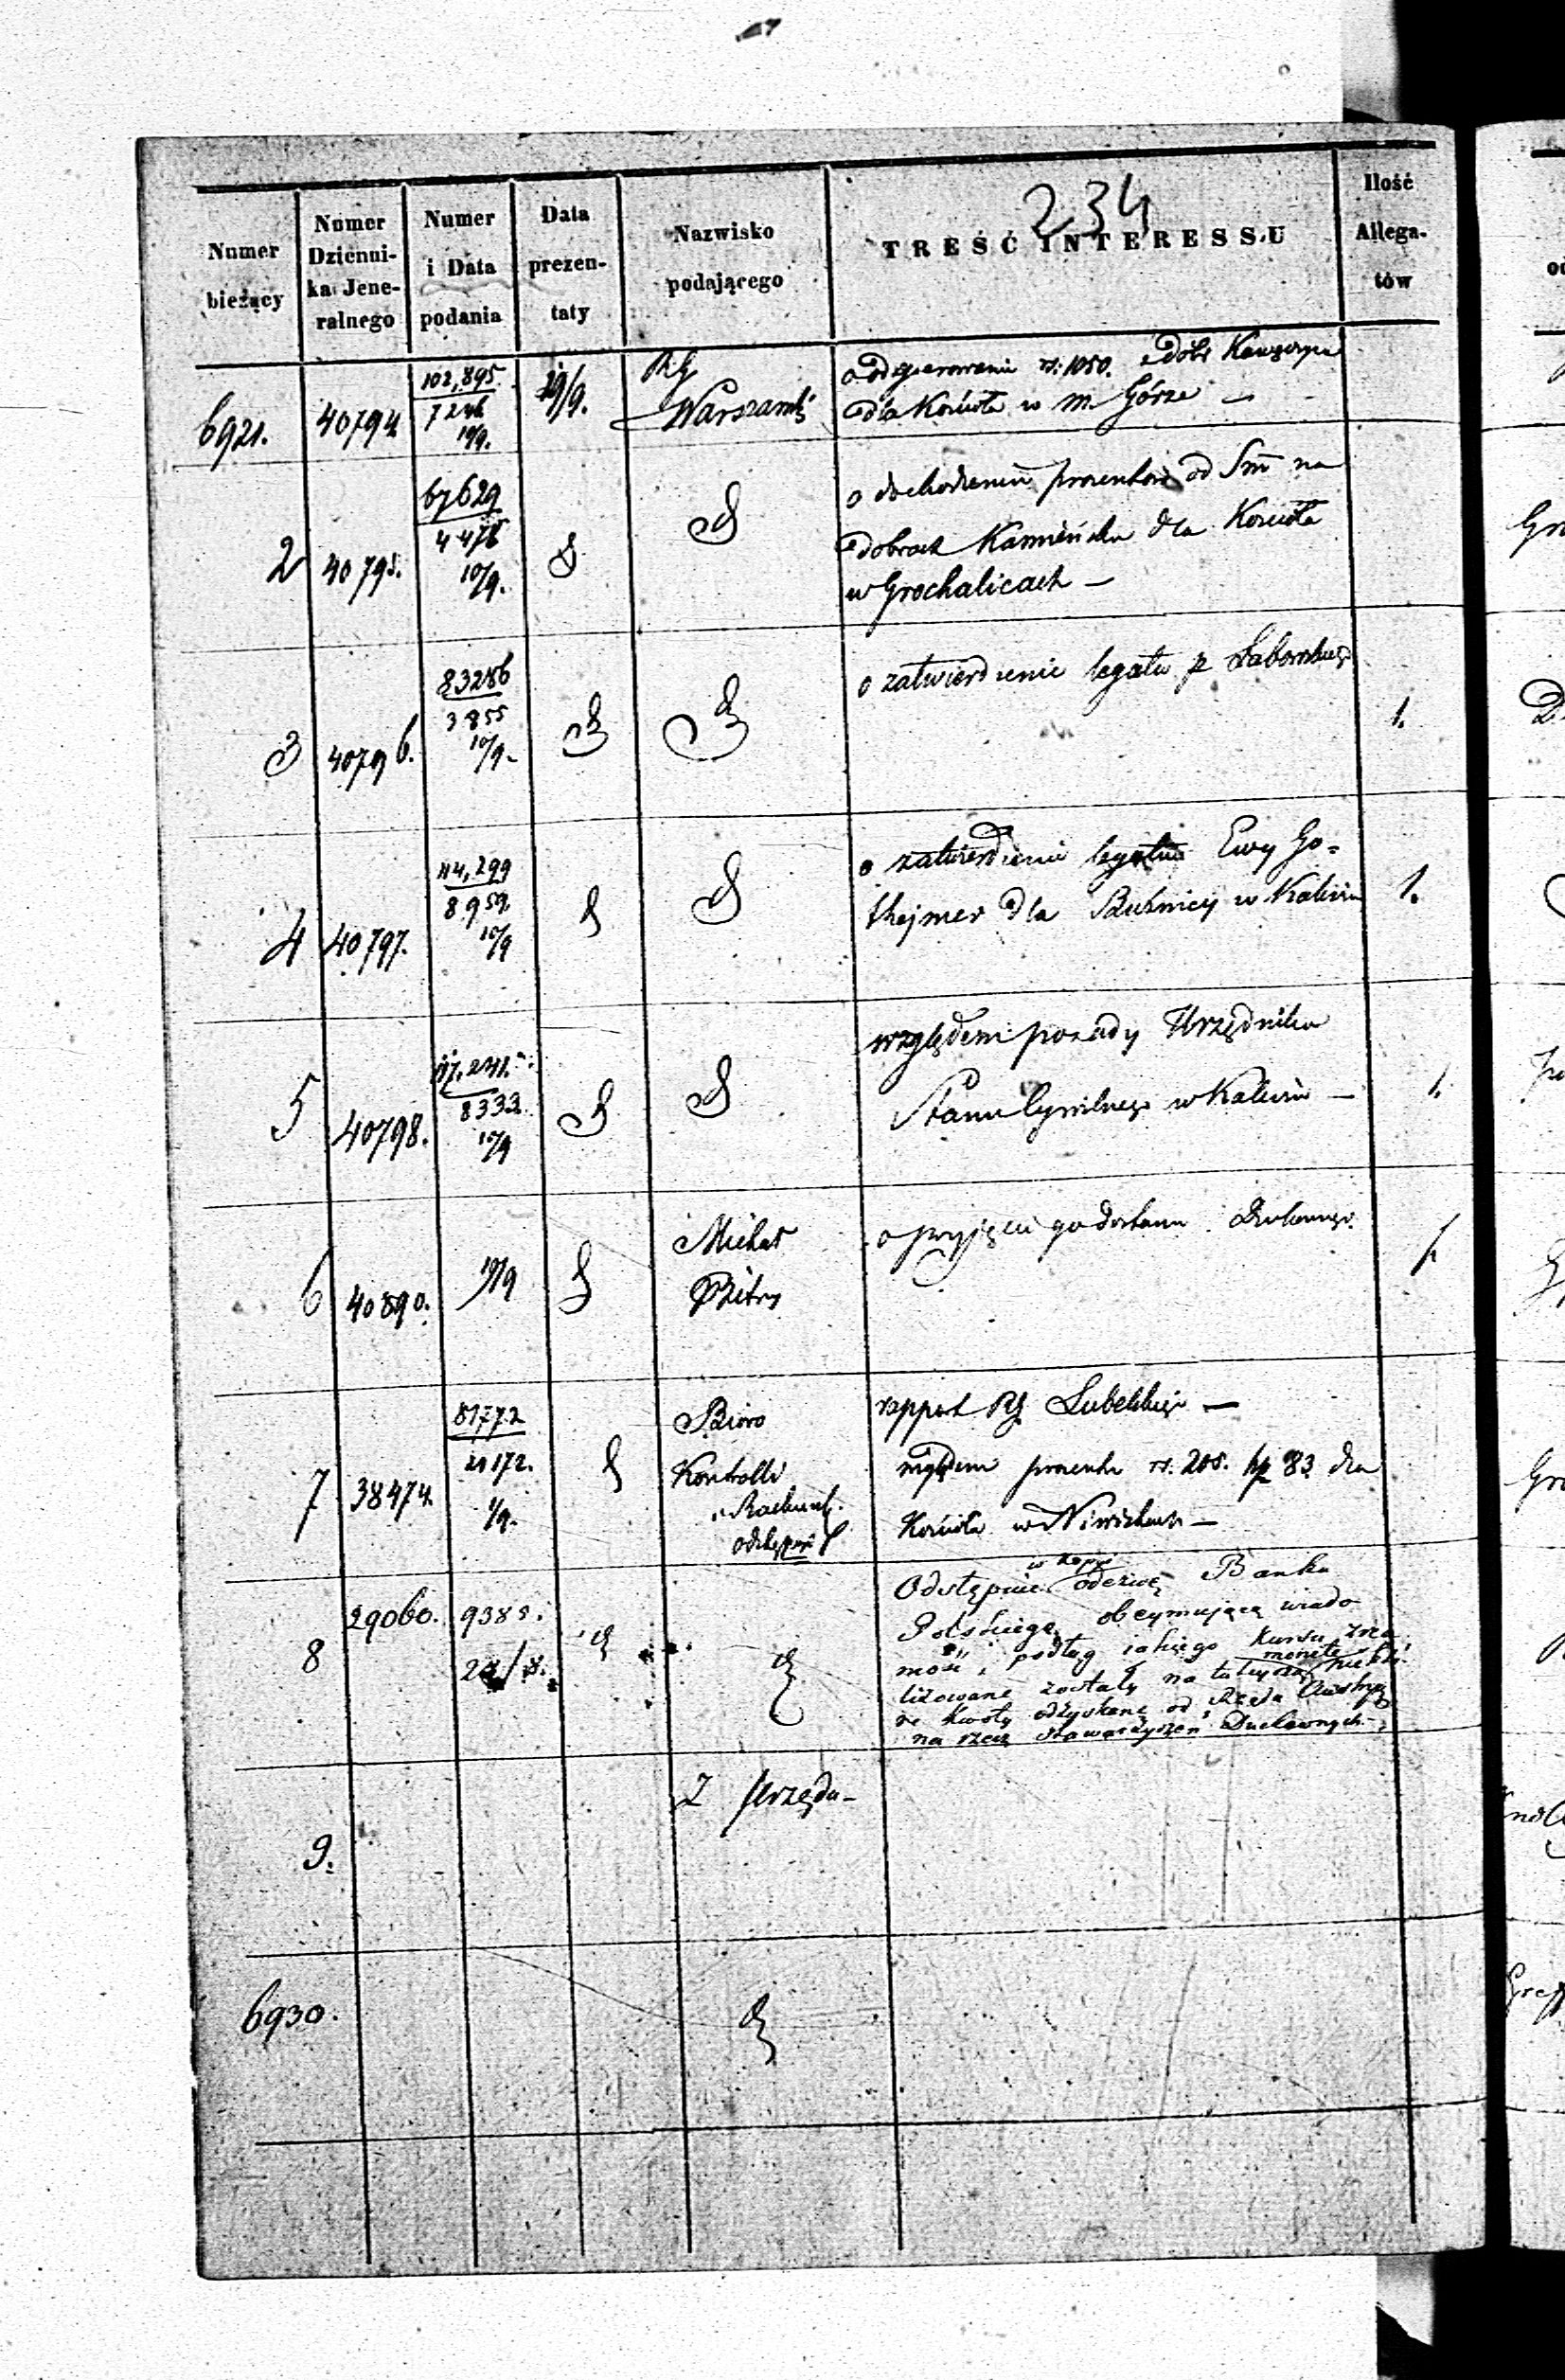 234
Numer bieżący
Numer Dziennika Jeneralnego
Numer i Data podania
Data prezentaty
Nazwisko podającego
TREŚĆ INTERESSU
Ilość Allegatów
6921. 40794. 102,895. 7246 10/9. 19/9. RG Warszawski
rs. 1050. dóbr
dla Kościoła w m. Górze —
2 40795. 67629 4478 10/9.
o dochodzeniu procentów od Sm̄ na
dobrach Kamieńsku dla Kościoła
w Grochalicach —
3 40796. 83286 3855 10/9.
o zatwierdzenie legatu p.
1.
4 40797. 44,299 8959 10/9
o zatwierdzenie legatu Ewy Go=
thejmer dla Bużnicy w Kaliszu
1.
5 40798. 8333. 10/9
względem posady Urzędnika
Stanu Cywilnego w Kaliszu —
1.
6 40890. 19/9
Michał
o przyjęcie go do stanu Duchownego
1.
7 38474. 81772 21172. 1/9.
Biuro
Kontrolli
rapport RG Lubelskiego —
względem procentu rs. 208. kp 83 dla
Kościoła w Niwiskach —
8 29060. 9385.
Odstępuie w kopii odezwę Banku
Polskiego, obeymującą wiado
mość, podług iakiego kursu zrea
lizowane zostały na tutejszą monetę
kwoty odzyskane od Rządu Austry
na rzecz stowarzyszeń Duchownych.
9.
Z Urzędu —
6930.